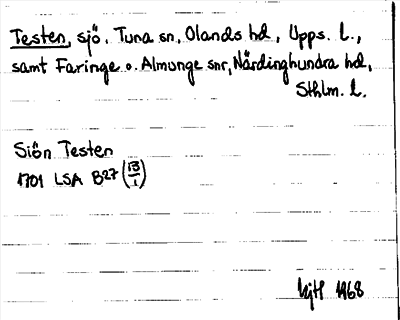 Testen, sjö. Tuna sn, Olands hd, Upps. l.,
samt Faringe o. Almunge snr, Närdinghundra hd,
Sthlm. l.
Siön Testen
1701 LSA B27 (13/1)
hjtf 1968